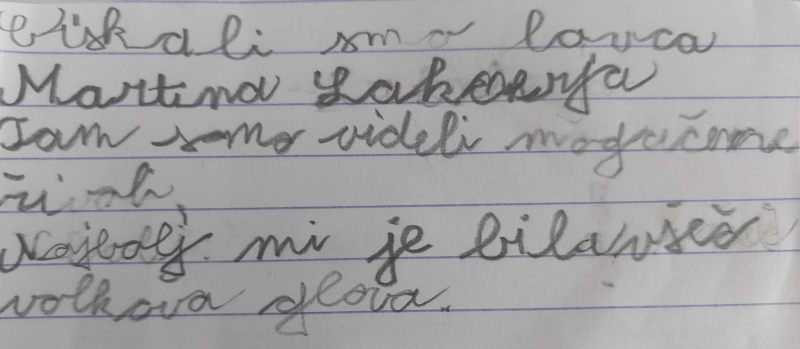 Viskali smo lovca
Martina Lakenerja
Tam smo videli mogačene
živali,
Najbolj mi je bila všeč
volkova glova.